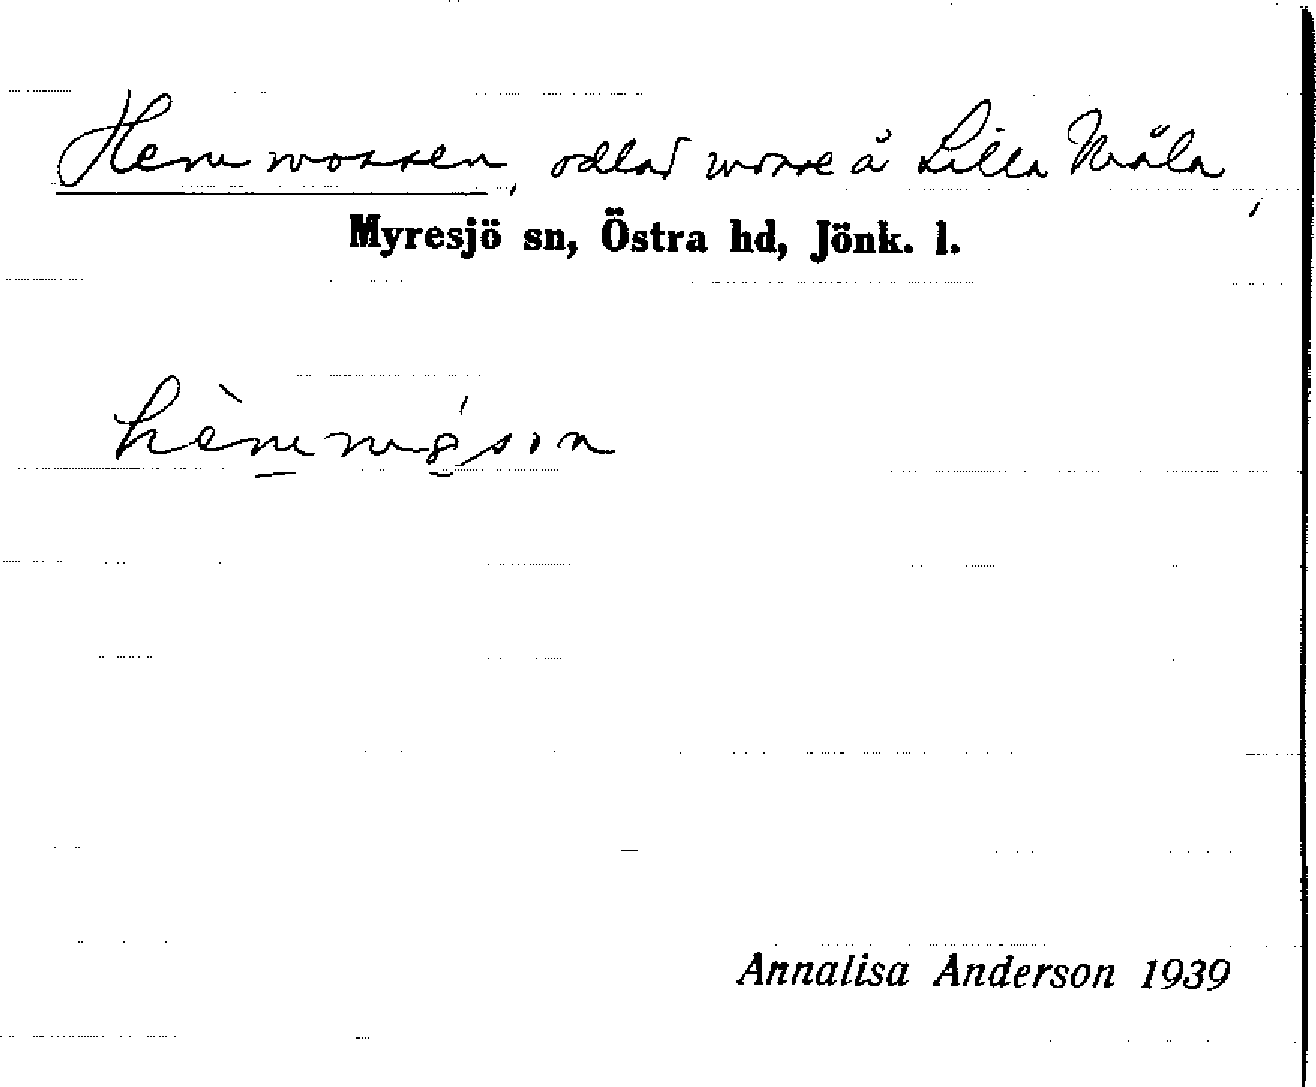 Hemmossen, odlad mosse å Lilla Måla,
Myresjö sn, Östra hd, Jönk. l.
Annalisa Anderson 1939